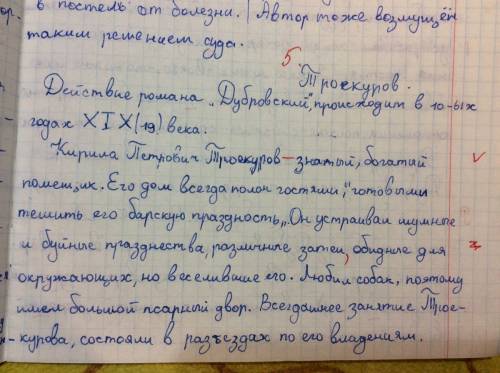 ор. в постель от болезни. | Автор тоже возмущён
таким решением суда.
5.
Троекуров.
Действие романа „Дубровский", происходит в 10-ых
годах XIX (19) века.
Кирила Петрович Троекуров – знатный, богатый V
помещик. Его дом всегда полон гостями, "готовыми
тешить его барскую праздность„. Он устраивал шумные
и буйные празднества, различные затеи, обидные для
окружающих, но веселившие его. Любил собак, поэтому
имел большой псарный двор. Всегдашнее занятие Трое-
курова, состояли в разъездах по его владениям.